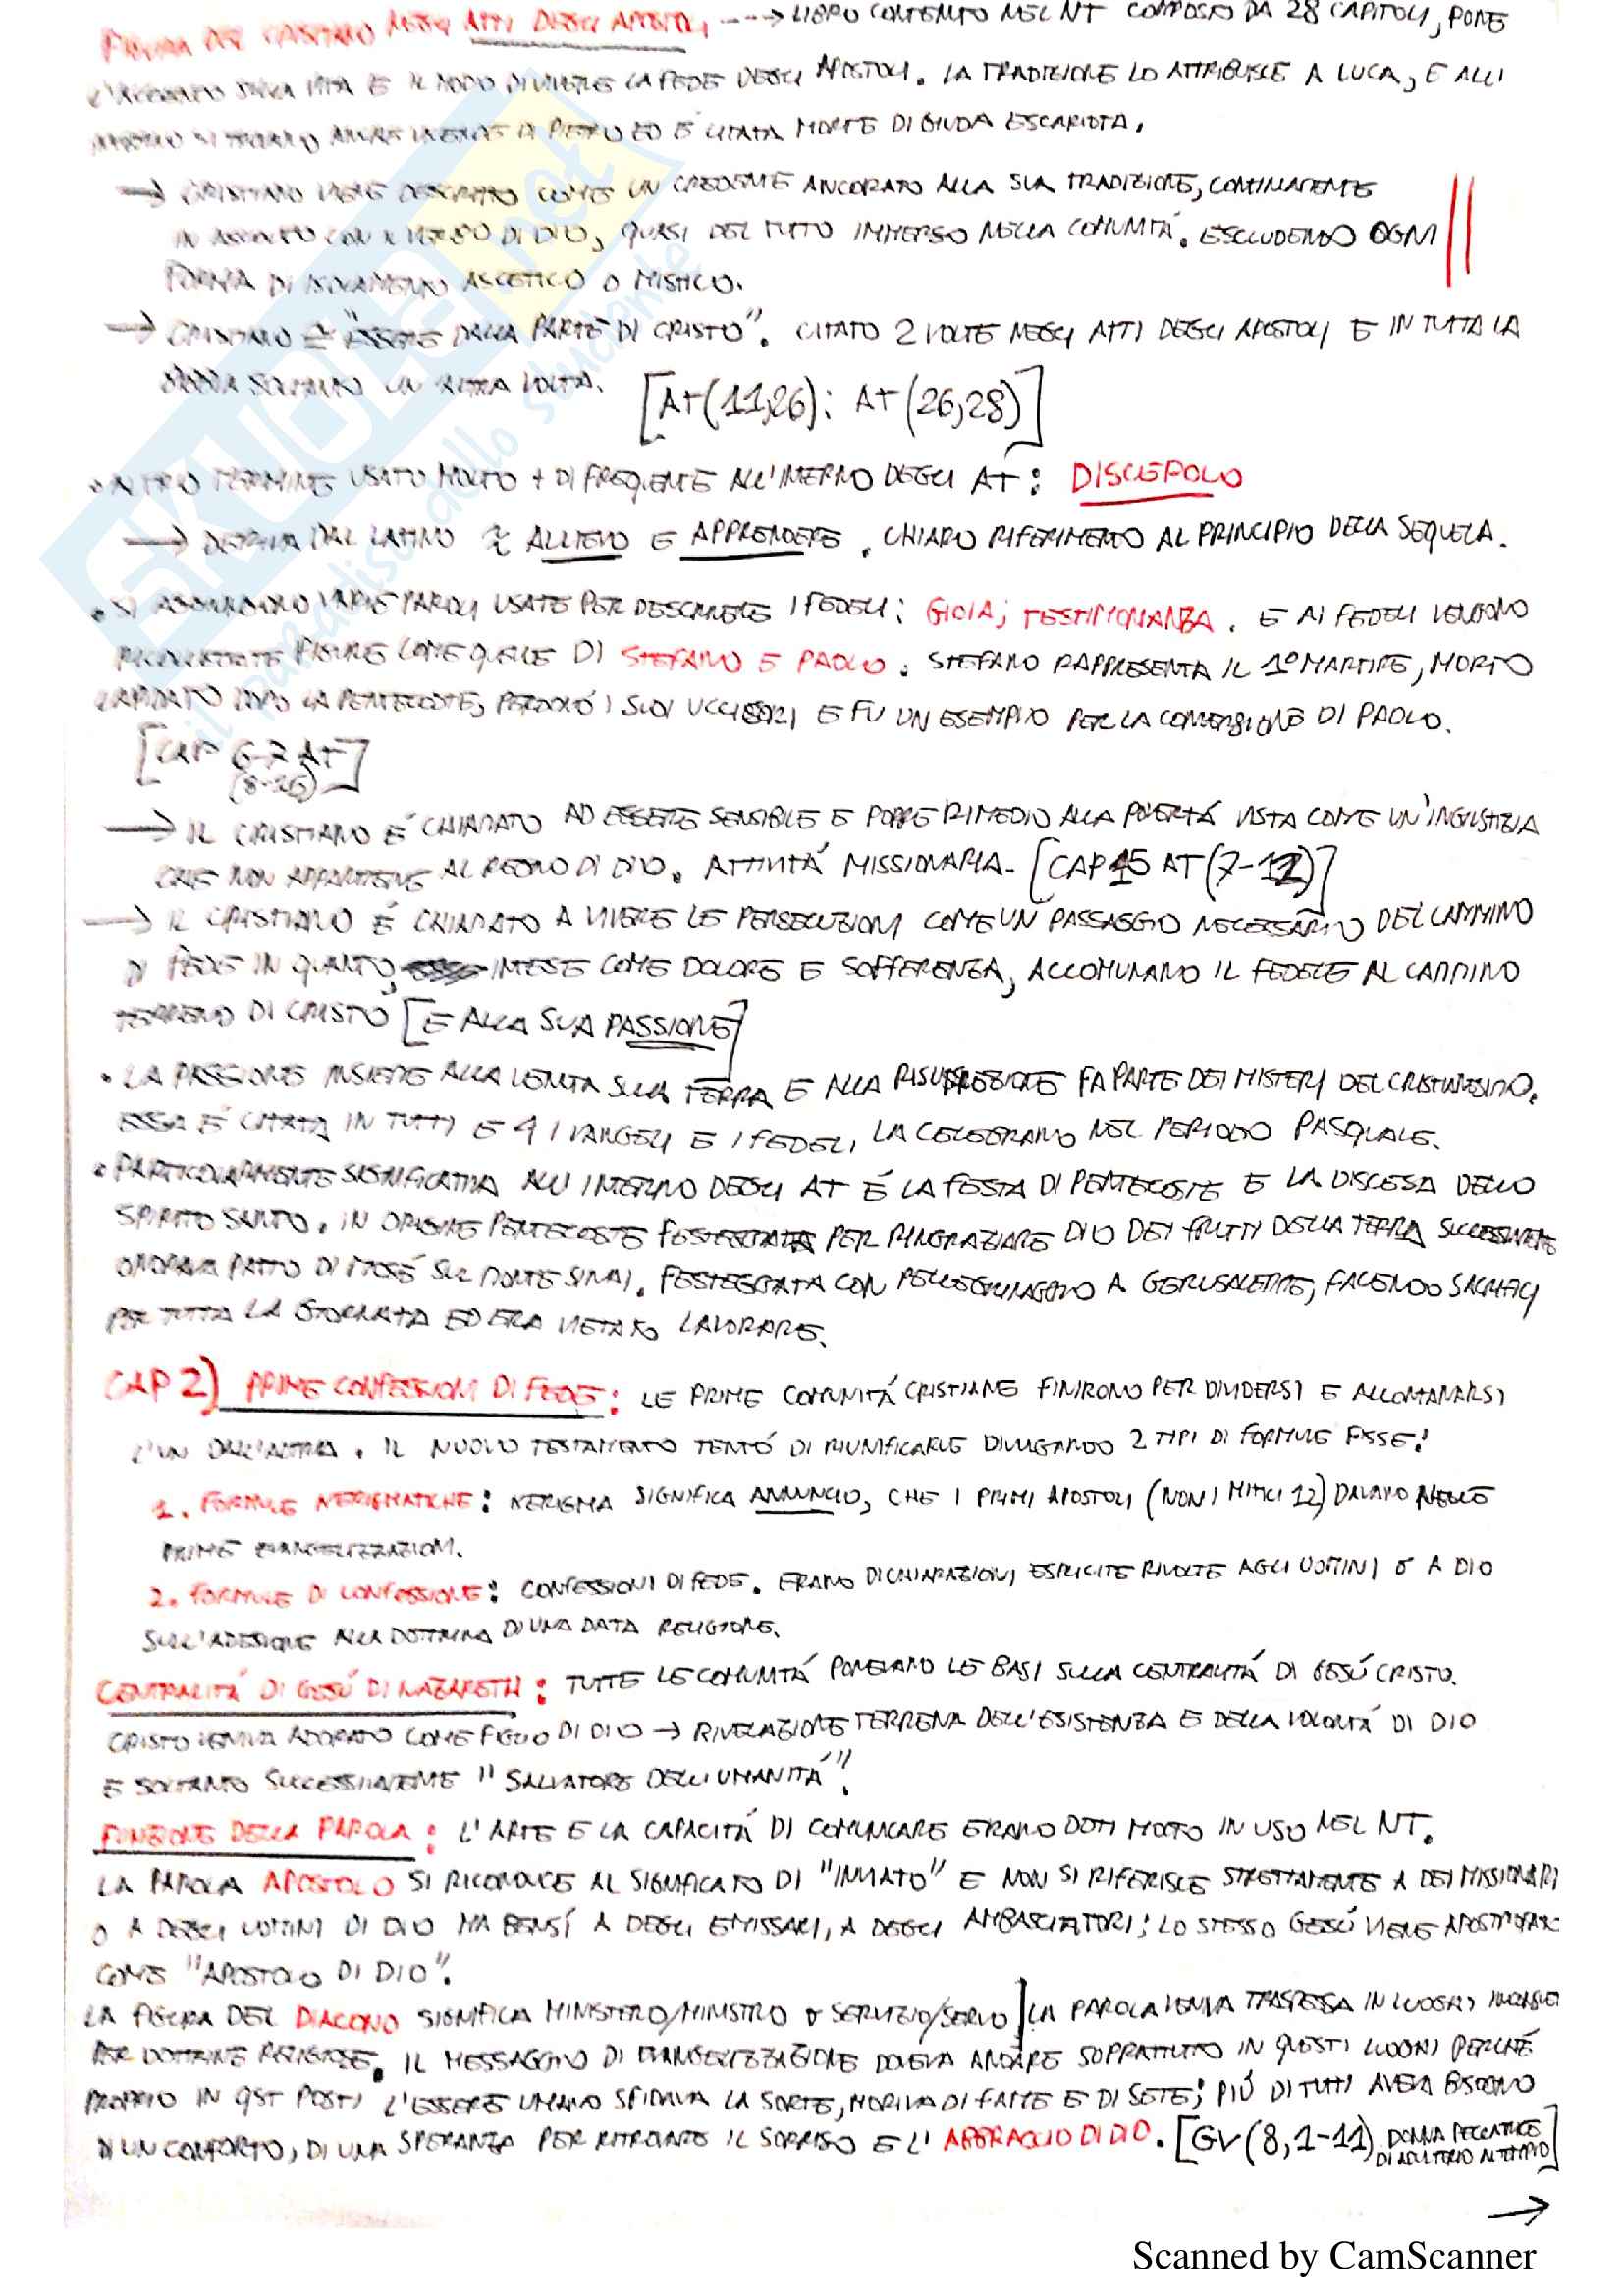 FIGURA DEL CRISTIANO NEGLI ATTI DEGLI APOSTOLI, ---> LIBRO CONTENUTO NEL NT COMPOSTO DA 28 CAPITOLI, PONE
L'ACCENTO SULLA VITA E IL MODO DI VIVERE LA FEDE DEGLI APOSTOLI. LA TRADIZIONE LO ATTRIBUISCE A LUCA, E ALL'
INTERNO SI TROVANO ANCHE VICENDE DI PIETRO ED È CITATA MORTE DI GIUDA ESCARIOTA.
→ CRISTIANO VIENE DESCRITTO COME UN CREDENTE ANCORATO ALLA SUA TRADIZIONE, CONTINUAMENTE
IN ASCOLTO CON IL VERBO DI DIO, QUASI DEL TUTTO IMMERSO NELLA COMUNITÀ. ESCLUDENDO OGNI
FORMA DI ISOLAMENTO ASCETICO O MISTICO.
→ CRISTIANO ≅ "ESSERE DALLA PARTE DI CRISTO". CITATO 2 VOLTE NEGLI ATTI DEGLI APOSTOLI E IN TUTTA LA
BIBBIA SOLTANTO UN'ALTRA VOLTA. [AT(11,26); AT(26,28)]
• ALTRO TERMINE USATO MOLTO + DI FREQUENTE ALL'INTERNO DEGLI AT: DISCEPOLO
→ DERIVA DAL LATINO ≅ ALLIEVO E APPRENDERE. CHIARO RIFERIMENTO AL PRINCIPIO DELLA SEQUELA.
• SI AGGIUNGONO VARIE PAROLE USATE PER DESCRIVERE I FEDELI: GIOIA; TESTIMONIANZA. E AI FEDELI VENGONO
FIGURE COME QUELLE DI STEFANO E PAOLO: STEFANO RAPPRESENTA IL 1° MARTIRE, MORTO
LAPIDATO DOPO LA PENTECOSTE, PERDONÒ I SUOI UCCISORI E FU UN ESEMPIO PER LA CONVERSIONE DI PAOLO.
[CAP 6-7 AT]
(8-26)
→ IL CRISTIANO È CHIAMATO AD ESSERE SENSIBILE E PORRE RIMEDIO ALLA POVERTÀ VISTA COME UN'INGIUSTIZIA
CHE NON APPARTIENE AL REGNO DI DIO. ATTIVITÀ MISSIONARIA. [CAP 15 AT (7-12)]
→ IL CRISTIANO È CHIAMATO A VIVERE LE PERSECUZIONI COME UN PASSAGGIO NECESSARIO DEL CAMMINO
DI FEDE IN QUANTO, INTESE COME DOLORE E SOFFERENZA, ACCOMUNANO IL FEDELE AL CAMMINO
TERRENO DI CRISTO [E ALLA SUA PASSIONE]
• LA PASSIONE INSIEME ALLA VENUTA SULLA TERRA E ALLA RISURREZIONE FA PARTE DEI MISTERI DEL CRISTIANESIMO.
ESSA È CITATA IN TUTTI E 4 I VANGELI E I FEDELI LA CELEBRANO NEL PERIODO PASQUALE.
• PARTICOLARMENTE SIGNIFICATIVA ALL'INTERNO DEGLI AT È LA FESTA DI PENTECOSTE E LA DISCESA DELLO
SPIRITO SANTO. IN ORIGINE PENTECOSTE FESTEGGIATA PER RINGRAZIARE DIO DEI FRUTTI DELLA TERRA
ONORAVA PATTO DI MOSÈ SUL MONTE SINAI. FESTEGGIATA CON PELLEGRINAGGIO A GERUSALEMME, FACENDO SACRIFICI
PER TUTTA LA GIORNATA ED ERA VIETATO LAVORARE.
CAP 2) PRIME CONFESSIONI DI FEDE: LE PRIME COMUNITÀ CRISTIANE FINIRONO PER DIVIDERSI E ALLONTANARSI
L'UN DALL'ALTRA. IL NUOVO TESTAMENTO TENTÒ DI RIUNIFICARLE DIVULGANDO 2 TIPI DI FORMULE FISSE:
1. FORMULE KERIGMATICHE: KERIGMA SIGNIFICA ANNUNCIO, CHE I PRIMI APOSTOLI (NON I MITICI 12) DAVANO NELLE
PRIME EVANGELIZZAZIONI.
2. FORMULE DI CONFESSIONE: CONFESSIONI DI FEDE. ERANO DICHIARAZIONI ESPLICITE RIVOLTE AGLI UOMINI O A DIO
SULL'ADESIONE ALLA DOTTRINA DI UNA DATA RELIGIONE.
CENTRALITÀ DI GESÙ DI NAZARETH: TUTTE LE COMUNITÀ PONEVANO LE BASI SULLA CENTRALITÀ DI GESÙ CRISTO.
CRISTO VENIVA ADORATO COME FIGLIO DI DIO → RIVELAZIONE TERRENA DELL'ESISTENZA E DELLA VOLONTÀ DI DIO
E SOLTANTO SUCCESSIVAMENTE "SALVATORE DELL'UMANITÀ".
FUNZIONE DELLA PAROLA: L'ARTE E LA CAPACITÀ DI COMUNICARE ERANO DOTI MOLTO IN USO NEL NT.
LA PAROLA APOSTOLO SI RICONDUCE AL SIGNIFICATO DI "INVIATO" E NON SI RIFERISCE STRETTAMENTE A DEI MISSIONARI
O A DEGLI UOMINI DI DIO MA BENSÌ A DEGLI EMISSARI, A DEGLI AMBASCIATORI; LO STESSO GESÙ VIENE
COME "APOSTOLO DI DIO".
LA FIGURA DEL DIACONO SIGNIFICA MINISTERO/MINISTRO O SERVIZIO/SERVO] LA PAROLA VENIVA TRASMESSA IN LUOGHI
PER DOTTRINE RELIGIOSE. IL MESSAGGIO DI EVANGELIZZAZIONE DOVEVA ANDARE SOPRATTUTTO IN QUESTI LUOGHI PERCHÉ
PROPRIO IN QST POSTI L'ESSERE UMANO SFIDAVA LA SORTE, MORIVA DI FAME E DI SETE; PIÙ DI TUTTI AVEVA BISOGNO
DI UN CONFORTO, DI UNA SPERANZA PER RITROVARE IL SORRISO E L'ABBRACCIO DI DIO. [GV (8,1-11) DONNA PECCATRICE
DI ADULTERIO AL TEMPIO]
→
SKUOLA.net
il paradiso dello studente
Scanned by CamScanner